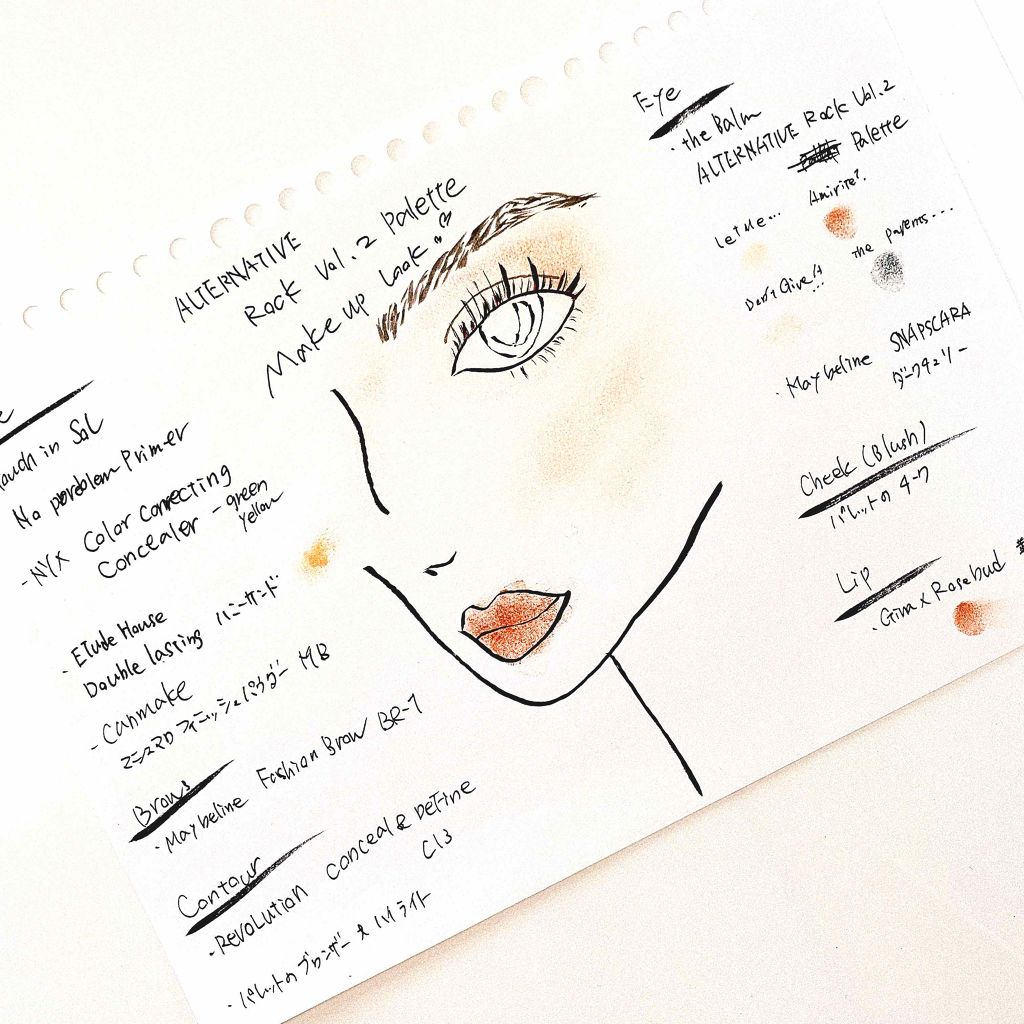 ALTERNATIVE
Rock Vol.2 Palette
Make up Look
Touch in Sol
No poroblem Primer
- NYX Color correcting
Concealer - green
yellow
· Etude House
Double lasting ハニーサンド
- Canmake
マシュマロフィニッシュパウダー MB
Brows
· Maybeline Fashion Brow BR-1
Contour
· REVOLUTION conceal & DeFine
C13
· パレットのブロンザー & ハイライト
Eye
· the Balm
ALTERNATIVE Rock Vol.2
Palette
Let Me... Amirite?
Don't Give!! the parents...
· Maybeline SNAPSCARA
ダークチェリー
Cheek (Blush)
パレットの チーク
Lip
· Gina x Rosebud